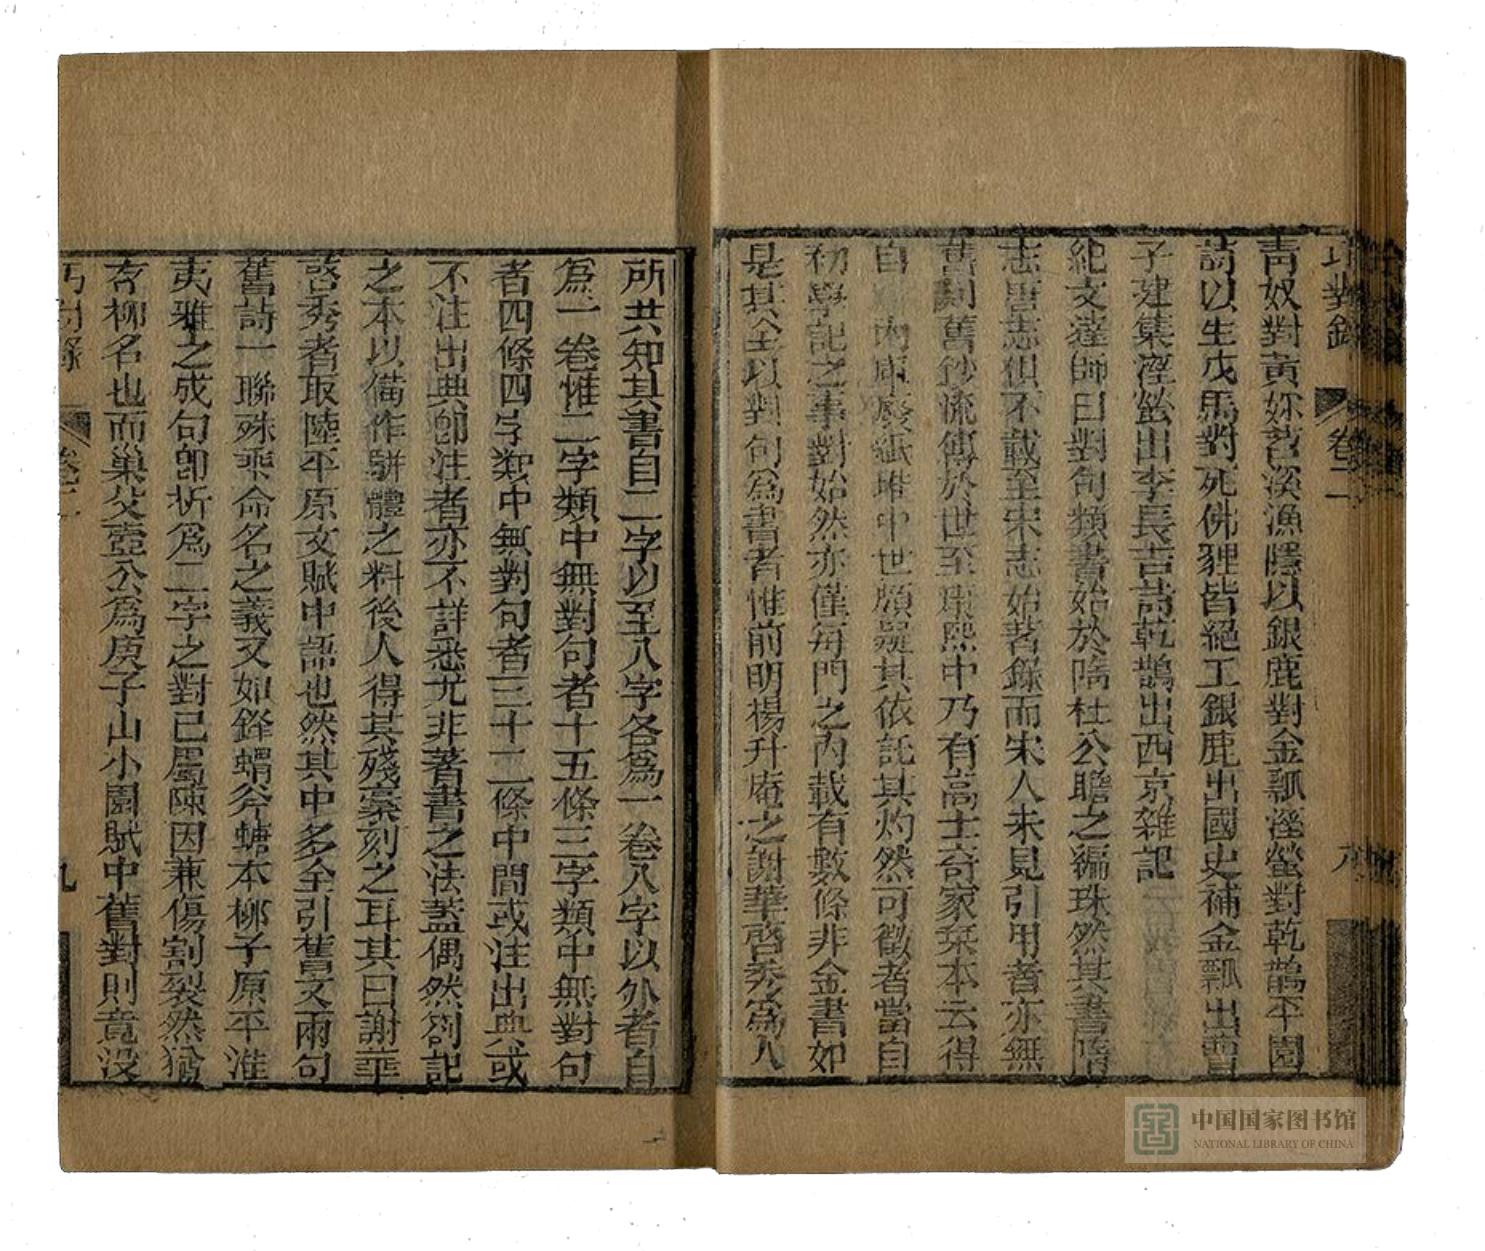 巧對錄 卷二 八
青奴對黃妳苕溪漁隱以銀鹿對金瓢溼螢對乾鵲平園
詩以生戊馬對死佛狸皆絕工銀鹿出國史補金瓢出曹
子建集溼螢出李長吉詩乾鵲出西京雜記
紀文達師曰對句類書始於隋杜公瞻之編珠然其書隋
志唐志俱不載至宋志始著錄而宋人未見引用者亦無
舊刻舊鈔流傳於世至康熙中乃有高士奇家栞本云得
自內庫廢紙堆中世頗疑其依託其灼然可徵者當自
初學記之事對始然亦僅每門之內載有數條非全書如
是其全以對句為書者惟前明楊升庵之謝華啓秀為人
所共知其書自二字以至八字各為一卷八字以外者自
為一卷惟二字類中無對句者十五條三字類中無對句
者四條四字類中無對句者三十二條中間或注出典或
不注出典卽注者亦不詳悉尤非著書之法蓋偶然劄記
之本以備作駢體之料後人得其殘稾刻之耳其曰謝華
啓秀者取陸平原文賦中語也然其中多全引舊文兩句
舊詩一聯殊乖命名之義又如鋒蝟斧螗本柳子原平淮
夷雅之成句卽折為二字之對已屬陳因兼傷割裂然猶
有柳名也而巢父壺公為庾子山小園賦中舊對則竟沒
巧對錄 卷二 九
中国国家图书馆
NATIONAL LIBRARY OF CHINA